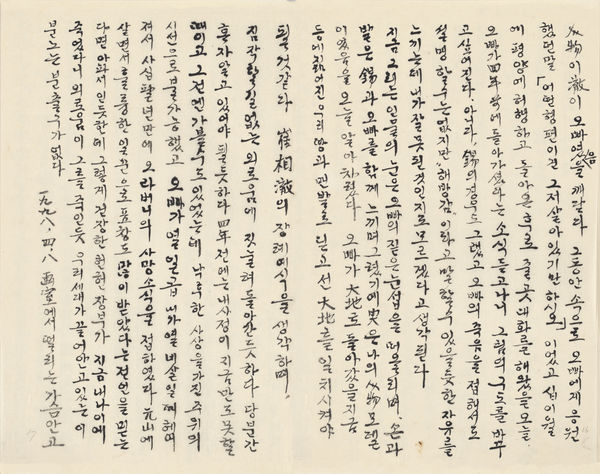 人物이 澈이 오빠였음을 깨달다 그동안 속으로 오빠에게 응원
했던말 「어떤형편이건 그저 살아있기만 하소」 이었고 십이월
에 평양에 여행하고 돌아온후로 줄곳 대화를 해왔을 오늘
오빠가 四年 前에 돌아가셨다는 소식듣고나니 그림의 구도를 바꾸
고 싶어진다 아니다 錫의 경우도 그랬고 오빠의 죽음을 접해서도
설명할수는 없지만 "해방감"이라고 말할수 있을듯한 자유를
느끼는데 내가 잘못된것인지도 모르겠다고 생각된다
지금 그리는 인물의 눈은 오빠의 짙은 눈섭을 떠올리며, 손과
발은 錫과 오빠를 함께 느끼며 그렸기에 나의 人物
이었음을 오늘 알아차렸다 오빠가 大地로 돌아갔을 지금
등에 짊어진 우리 엄마와 맨발로 선 大地를 일치시켜야
될것같다 崔相澈의 장례예식을 생각하며.
짐작할길없는 외로움에 짓눌려 돌아간듯하다 당분간
혼자 알고있어야 될듯하다 四年前에는 내사정이 지금만도 못할
때이고 그건 있었는데 낙후한 사상을 가진 주위의
시선으로 불가능했고 오빠가 열일곱 내가 열네살일때 헤어
져서 사십팔년만에 오라버니의 사망소식을 접하였다 北에
살면서 훌륭한 일꾼으로 표창도 많이 받았다는 전언을 믿는
다면 아파서인듯한데 그렇게 건장한 헌헌장부가 지금 내나이에
죽었다니 외로움이 그를 죽인듯 우리세대가 끌어안고있는 이
분노는 분출구가 없다
一九九八.四.八 画室에서 떨리는 가슴안고